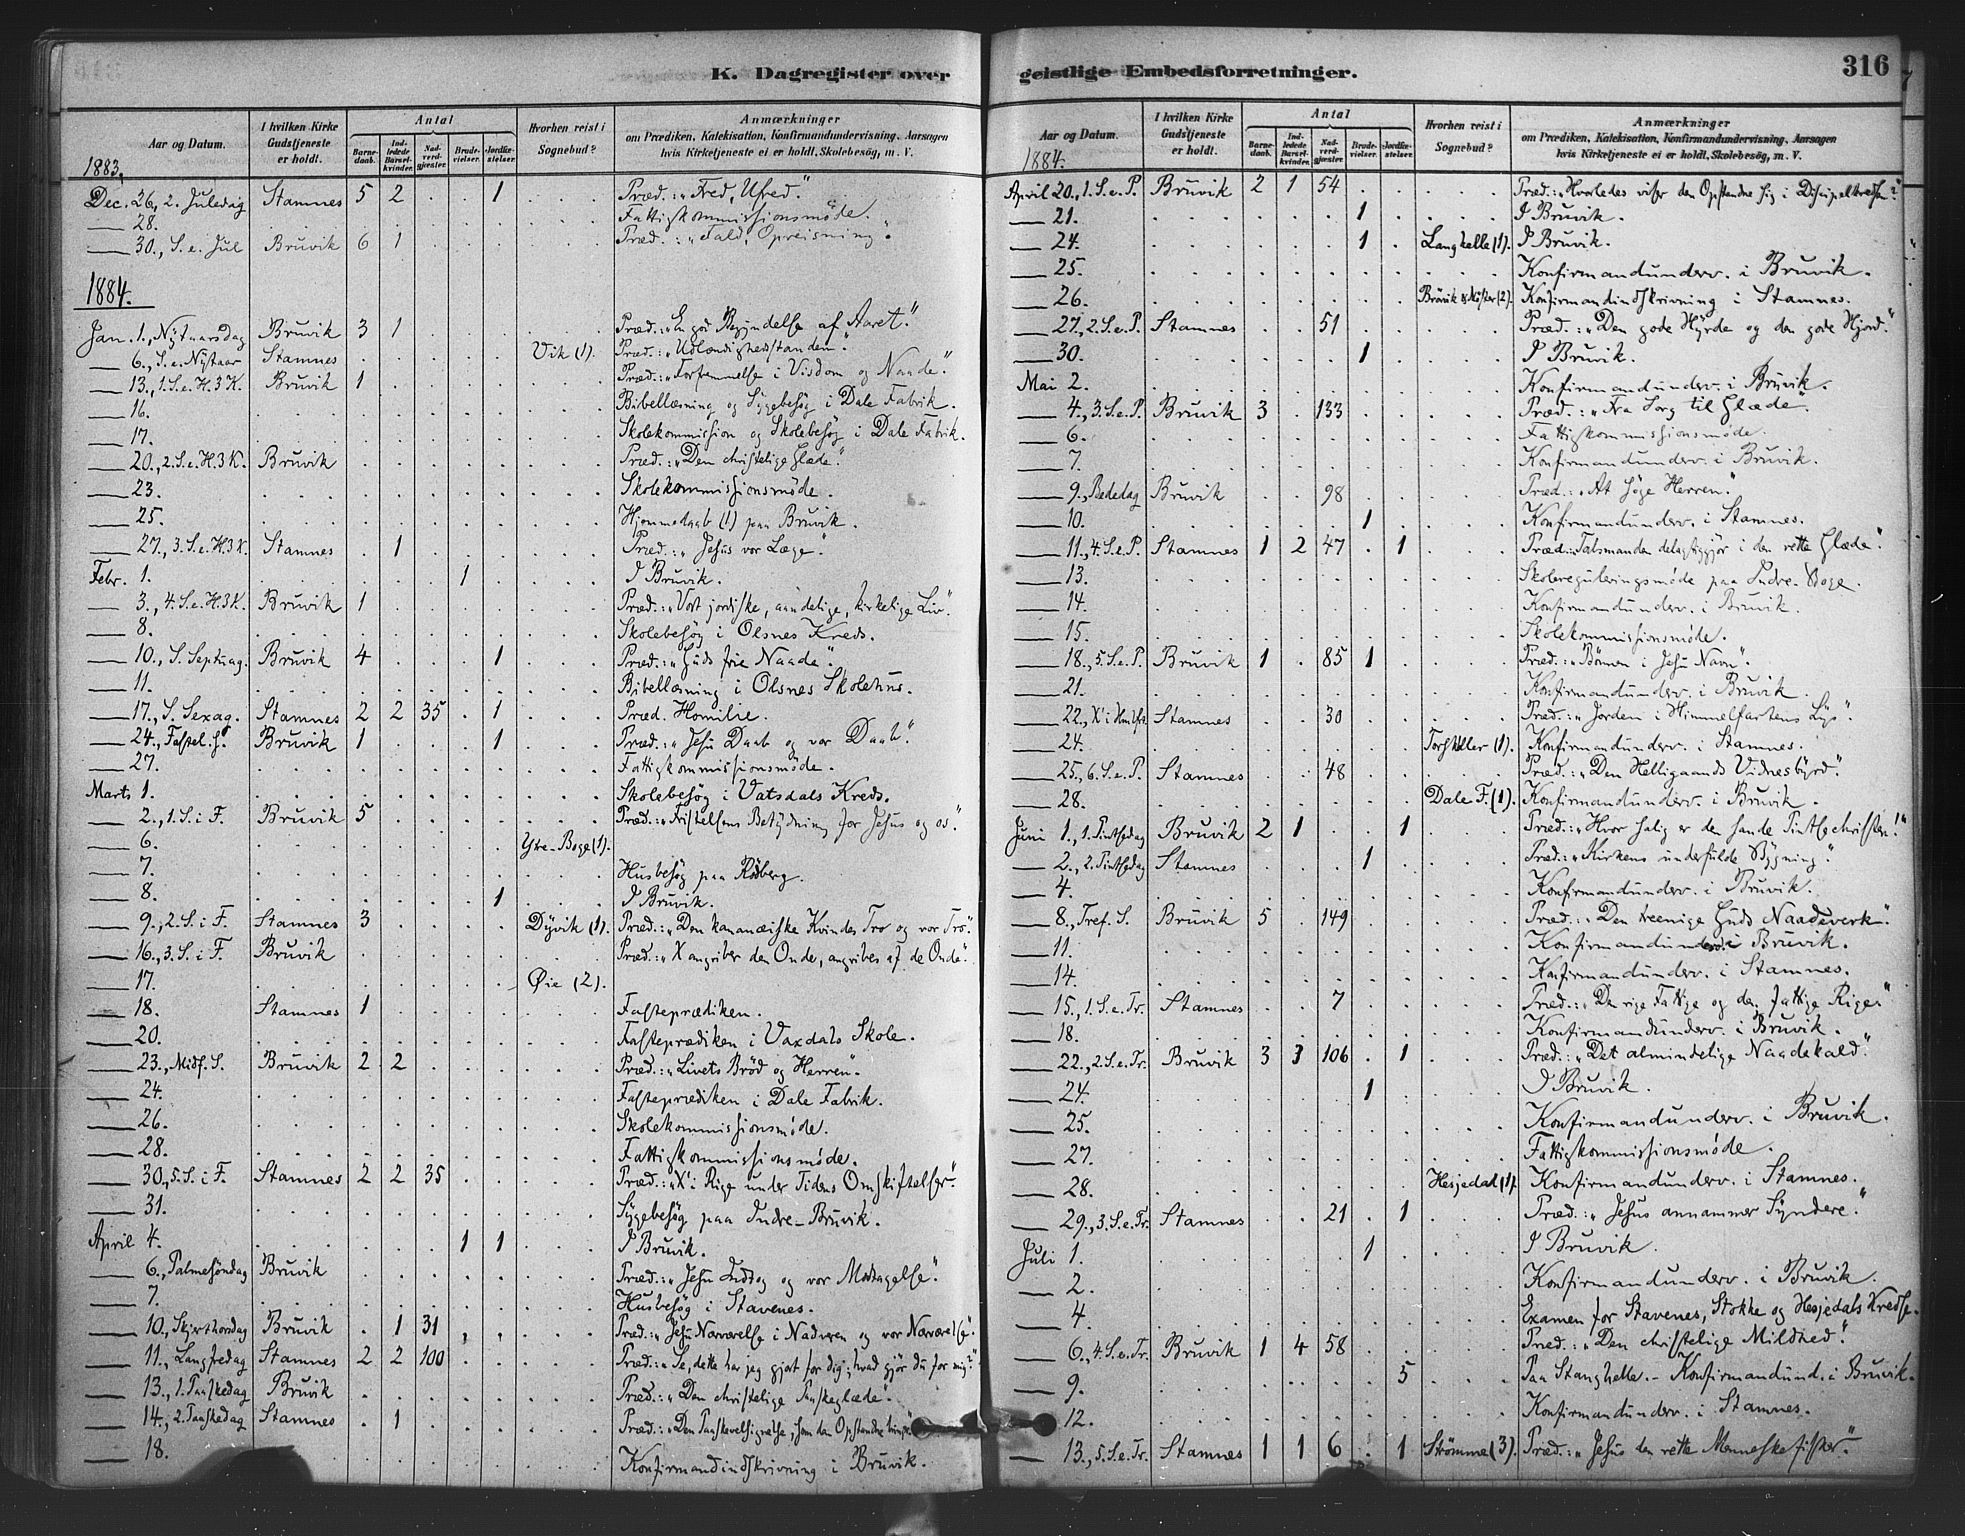 K. Dagregister over
Aar og Datum. | I hvilken Kirke Gudstjeneste er holdt. | Antal | Barnedaab. | Indledede Barselkvinder. | Nadverdgjæster. | Brudevielser. | Jordfæstelser. | Hvorhen reist i Sognebud? | Anmærkninger om Prædiken, Katekisation, Konfirmandundervisning, Aarsagen hvis Kirketjeneste ei er holdt, Skolebesøg, m. V.
1883.
Dec. 26, 2. Juledag Stamnes 5 2 . . 1 Præd.: „Fred, Ufred."
28. Fattigkommissionsmøde.
30., S. e. Jul Bruvik 6 1 Præd.: „Fald, Opreisning".
1884.
Jan. 1., Nytaarsdag Bruvik 3 1 Præd.: „En god Begyndelse af Aaret."
6., S. e. Nytaar Stamnes Vik (1). Præd.: „Udlændighedsstanden".
13., 1. S. e. H. 3 K. Bruvik 1 Præd.: „Forfremmelse i Visdom og Naade."
16. Bibellæsning og Sygebesøg i Dale Fabrik.
17. Skolekommission og Skolebesøg i Dale Fabrik.
20., 2. S. e. H. 3 K. Bruvik Præd.: „Den christelige Glæde".
23. Skolekommissionsmøde.
25. Hjemmedaab (1) paa Bruvik.
27., 3. S. e. H. 3 K. Stamnes . 1 Præd.: „Jesus vor Læge."
Febr. 1. 1 I Bruvik.
3., 4. S. e. H. 3 K. Bruvik 1 Præd.: „Vort jordiske, aandelige, kirkelige Liv".
8. Skolebesøg i Olsnes Kreds.
10., S. Septuag. Bruvik 4 . . . 1 Præd.: „Guds frie Naade".
11. Bibellæsning i Olsnes Skolehus.
17., S. Sexag. Stamnes 2 2 35 . 1 Præd. Homilie.
24., Fastel. S. Bruvik 1 . . . 1 Præd.: „Jesu Daab og vor Daab".
27. Fattigkommissionsmøde.
Marts 1. Skolebesøg i Vatsdals Kreds.
2., 1. S. i F. Bruvik 5 Præd.: „Fristelsens Betydning for Jesus og os".
6. Ytre-Boge (1).
7. Husbesøg paa Rødberg.
8. 1 I Bruvik.
9., 2. S. i F. Stamnes 3 Dyvik (1). Præd.: „Den kananæiske Kvindes Tro og vor Tro".
16., 3. S. i F. Bruvik Præd.: „X angriber den Onde, angribes af de Onde".
17. Øie (2).
18. Stamnes 1 Fasteprædiken.
20. Fasteprædiken i Vaxdals Skole.
23., Midf. S. Bruvik 2 2 Præd.: „Livets Brød og Herren".
24. Fasteprædiken i Dale Fabrik.
26. Skolekommissionsmøde.
28. Fattigkommissionsmøde.
30., 5. S. i F. Stamnes 2 2 35 Præd.: „X's Rige under Tidens Omskiftelser".
31. Sygebesøg paa Indre-Bruvik.
April 4. 1 1 I Bruvik.
6., Palmesøndag Bruvik Præd.: „Jesu Indtog og vor Modtagelse".
7. Husbesøg i Stavenes.
10., Skjærthorsdag Bruvik . 1 31 Præd.: „Jesu Nærværelse i Nadveren og vor Nærværelse".
11., Langfredag Stamnes 2 2 100 Præd.: „Se, dette har jeg gjort for dig; hvad gjør du for mig?"
13., 1. Paaskedag Bruvik Præd.: „Den christelige Paaskeglæde".
14., 2. Paaskedag Stamnes . 1 Præd.: „Den Paaskevelsignelse, som den Opstandne
18. Konfirmandindskrivning i Bruvik.
geistlige Embedsforretninger. 316
Aar og Datum. | I hvilken Kirke Gudstjeneste er holdt. | Antal | Barnedaab. | Indledede Barselkvinder. | Nadverdgjæster. | Brudevielser. | Jordfæstelser. | Hvorhen reist i Sognebud? | Anmærkninger om Prædiken, Katekisation, Konfirmandundervisning, Aarsagen hvis Kirketjeneste ei er holdt, Skolebesøg, m. V.
1884.
April 20., 1. S. e. P. Bruvik 2 1 54 Præd.: „Hvorledes viser den Opstandne sig i Discipelkredsen?"
21. 1 I Bruvik.
24. 1 . Langhelle (1). I Bruvik.
25. Konfirmandunderv. i Bruvik.
26. Bruvik & (2). Konfirmandindskrivning i Stamnes.
27., 2. S. e. P. Stamnes 51 Præd.: „Den gode Hyrde og den gode Hjord".
30. 1 I Bruvik.
Mai 2. Konfirmandunderv. i Bruvik.
4., 3. S. e. P. Bruvik 3 . 133 Præd.: „Fra Sorg til Glæde".
6. Fattigkommissionsmøde.
7. Konfirmandunderv. i Bruvik.
9., Bededag Bruvik . . 98 Præd.: „At søge Herren".
10. 1 Konfirmandunderv. i Stamnes.
11., 4. S. e. P. Stamnes 1 2 47 . 1 Præd.: „Talsmanden delagtiggjør i den rette Glæde".
13. Skolereguleringsmøde paa Indre-Boge.
14. Konfirmandunderv. i Bruvik.
15. Skolekommissionsmøde.
18., 5. S. e. P. Bruvik 1 . 85 1 Præd.: „Bønnen i Jesu Navn".
21. Konfirmandunderv. i Bruvik.
22., X' i Hmlfrt. Stamnes . . 30 Præd.: „Jorden i Himmelfartens Lys".
24. (1). Konfirmandunderv. i Stamnes.
25., 6. S. e. P. Stamnes . . 48 Præd.: „Den Helligaands Vidnesbyrd".
28. Dale F. (1). Konfirmandunderv. i Bruvik.
Juni 1., 1. Pintsedag Bruvik 2 1 . . 1 Præd.: „Hvor salig er den sande Pintsechristen!"
2., 2. Pintsedag Stamnes 1 Præd.: „Kirkens underfulde Bygning".
4. Konfirmandunderv. i Bruvik.
8., Tref. S. Bruvik 5 . 149 Præd.: „Den treenige Guds Naadeverk".
11. Konfirmandunderv. i Bruvik.
14. Konfirmandunderv. i Stamnes.
15., 1. S. e. Tr. Stamnes . . 7 Præd.: „Den rige Fattige og den fattige Rige."
18. Konfirmandunderv. i Bruvik.
22., 2. S. e. Tr. Bruvik 3 3 106 . 1 Præd.: „Det almindelige Naadekald".
24. 1 I Bruvik.
25. Konfirmandunderv. i Bruvik.
27. Fattigkommissionsmøde.
28. Hesjedal (1). Konfirmandunderv. i Stamnes.
29., 3. S. e. Tr. Stamnes . . 21 . 1 Præd.: „Jesus annammer Syndere".
Juli 1. 1 I Bruvik.
2. Konfirmandunderv. i Bruvik.
4. Examen for Stavenes, Stokke og Hesjedals Kredse.
6., 4. S. e. Tr. Bruvik 1 4 58 Præd.: „Den christelige Mildhed".
9. 5 Paa Stanghelle. – Konfirmandund. i Bruvik.
12. Konfirmandunderv. i Stamnes.
13., 5. S. e. Tr. Stamnes 1 1 6 . 1 Strømme (3). Præd.: „Jesus den rette Menneskefisker".